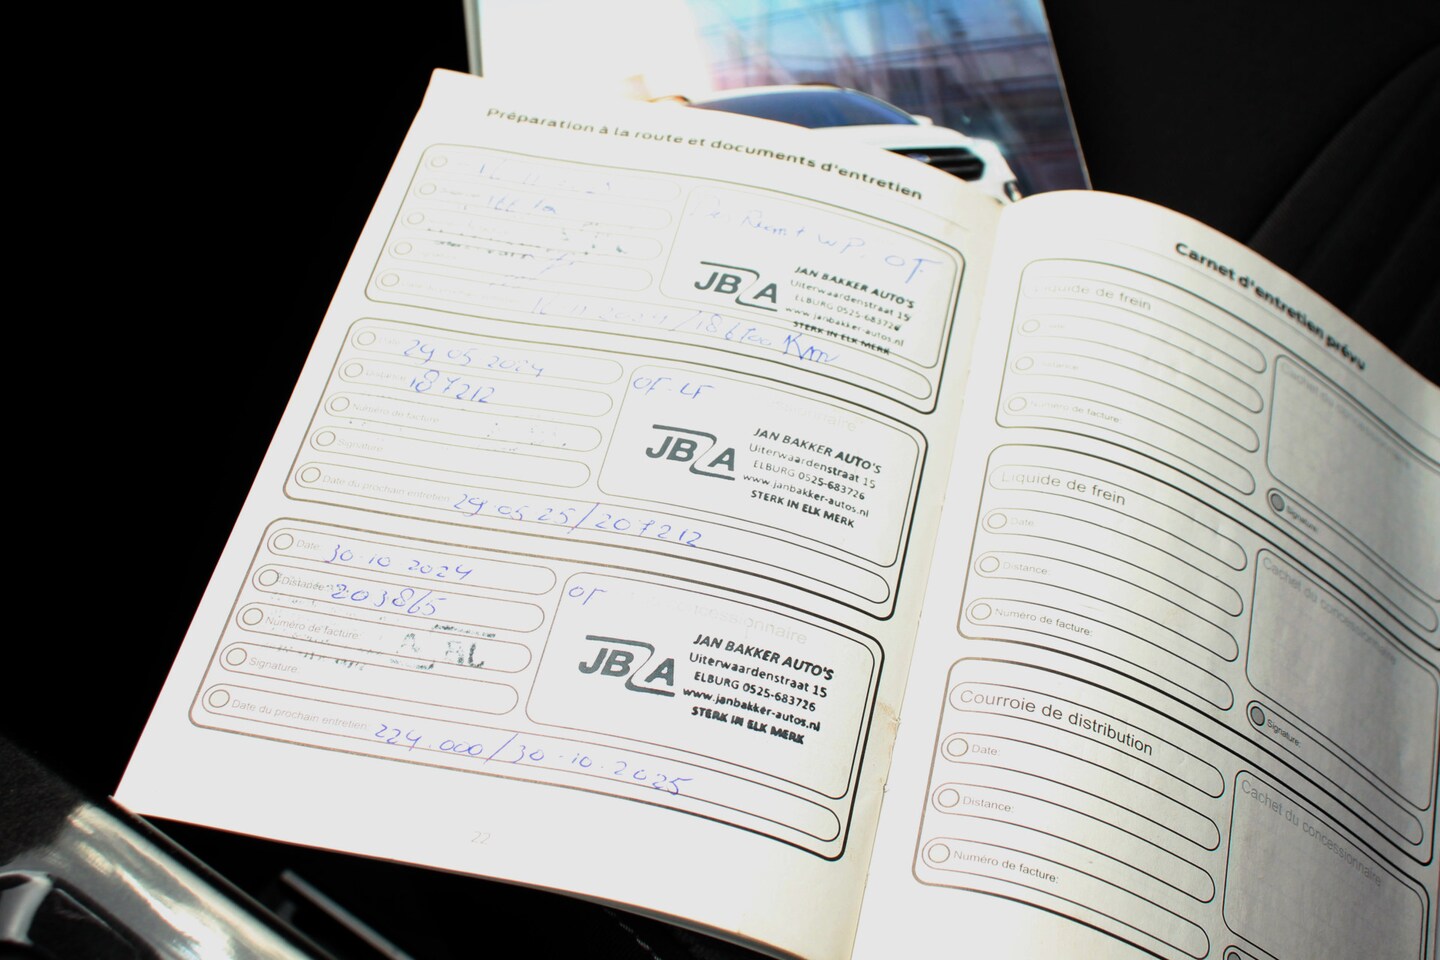 Préparation à la route et documents d'entretien
OF
JBA
JAN BAKKER AUTO'S
Uiterwaardenstraat 15
ELBURG 0525-683726
www.janbakker-autos.nl
STERK IN ELK MERK
Km
29 05 2024
187212
Numéro de facture:
Signature:
Date du prochain entretien:
29 05 25/207212
OF. LF
JBA
JAN BAKKER AUTO'S
Uiterwaardenstraat 15
ELBURG 0525-683726
www.janbakker-autos.nl
STERK IN ELK MERK
Date: 30-10 2024
Distance: 203865
Numéro de facture:
Signature:
Date du prochain entretien: 224.000/30-10-2025
OF
JBA
JAN BAKKER AUTO'S
Uiterwaardenstraat 15
ELBURG 0525-683726
www.janbakker-autos.nl
STERK IN ELK MERK
22
Carnet d'entretien prévu
Liquide de frein
Numéro de facture:
Signature:
Liquide de frein
Date:
Distance:
Numéro de facture:
Cachet du concessionnaire
Signature:
Courroie de distribution
Date:
Distance:
Numéro de facture:
Cachet du concessionnaire